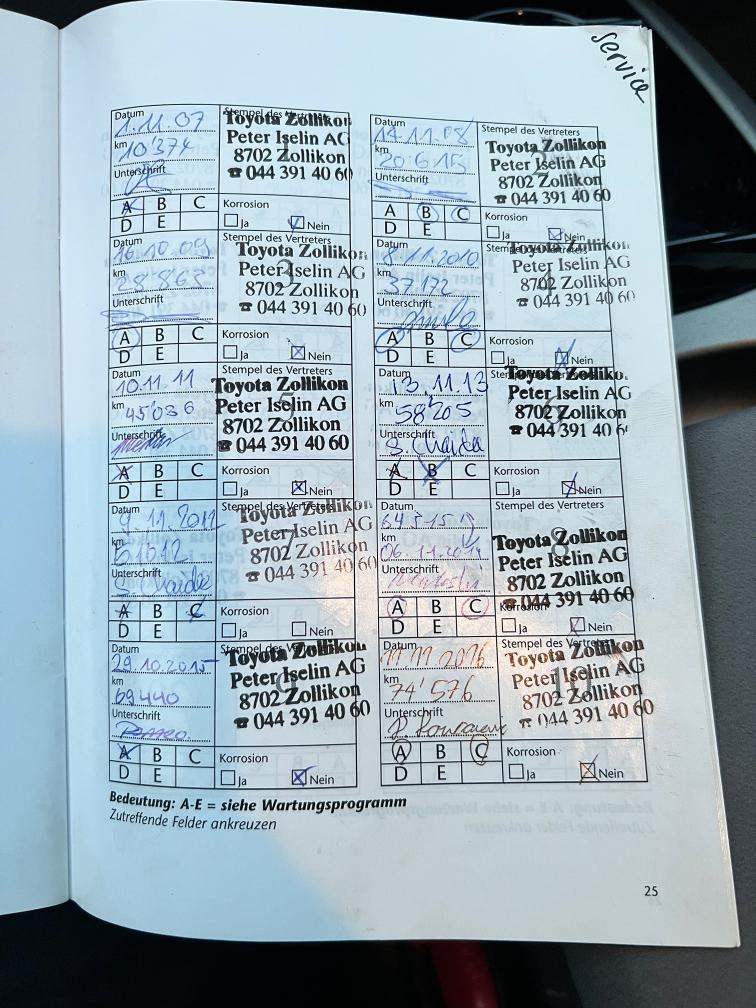 Service
Datum
1.11.07
km
10'374
Unterschrift
Stempel des Vertreters
Toyota Zollikon
Peter Iselin AG
8702 Zollikon
☎ 044 391 40 60
1
A B C
D E
Korrosion
Ja Nein
Datum
14.11.08
km
20'615
Unterschrift
Stempel des Vertreters
Toyota Zollikon
Peter Iselin AG
8702 Zollikon
☎ 044 391 40 60
2
A B C
D E
Korrosion
Ja Nein
Datum
16.10.09
km
28'863
Unterschrift
Stempel des Vertreters
Toyota Zollikon
Peter Iselin AG
8702 Zollikon
☎ 044 391 40 60
3
A B C
D E
Korrosion
Ja Nein
Datum
8.11.2010
km
37'172
Unterschrift
Stempel des Vertreters
Toyota Zollikon
Peter Iselin AG
8702 Zollikon
☎ 044 391 40 60
4
A B C
D E
Korrosion
Ja Nein
Datum
10.11.11
km
45'036
Unterschrift
Stempel des Vertreters
Toyota Zollikon
Peter Iselin AG
8702 Zollikon
☎ 044 391 40 60
5
A B C
D E
Korrosion
Ja Nein
Datum
13.11.13
km
58'205
Unterschrift
Stempel des Vertreters
Toyota Zolliko
Peter Iselin AG
8702 Zollikon
☎ 044 391 40 6
A B C
D E
Korrosion
Ja Nein
Datum
9.11.2012
km
51612
Unterschrift
Stempel des Vertreters
Toyota Zollikon
Peter Iselin AG
8702 Zollikon
☎ 044 391 40 60
7
A B C
D E
Korrosion
Ja Nein
Datum
64'515
km
06.11.2014
Unterschrift
Stempel des Vertreters
Toyota Zollikon
Peter Iselin AG
8702 Zollikon
☎ 044 391 40 60
8
A B C
D E
Korrosion
Ja Nein
Datum
29.10.2015
km
69440
Unterschrift
Stempel des Vertreters
Toyota Zollikon
Peter Iselin AG
8702 Zollikon
☎ 044 391 40 60
9
A B C
D E
Korrosion
Ja Nein
Datum
11.11.2016
km
74'576
Unterschrift
Stempel des Vertreters
Toyota Zollikon
Peter Iselin AG
8702 Zollikon
☎ 044 391 40 60
10
A B C
D E
Korrosion
Ja Nein
Bedeutung: A-E = siehe Wartungsprogramm
Zutreffende Felder ankreuzen
25